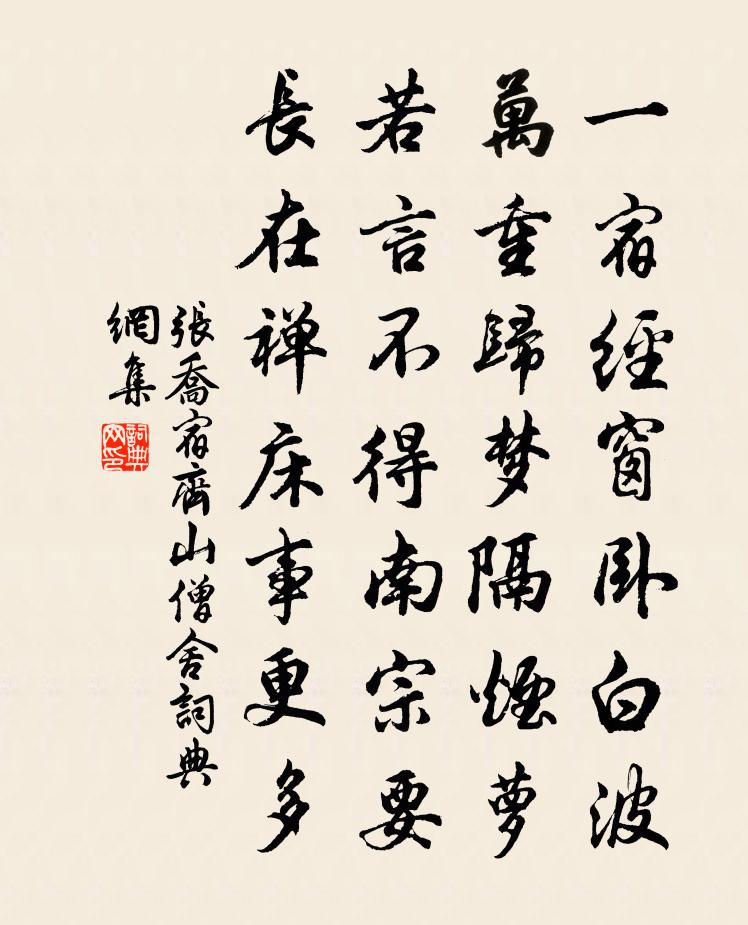 一宿經窗臥白波
萬重歸梦隔煙萝
若言不得南宗要
長在禅床事更多
張喬宿齊山僧舍詞典
網集
詞典
网印